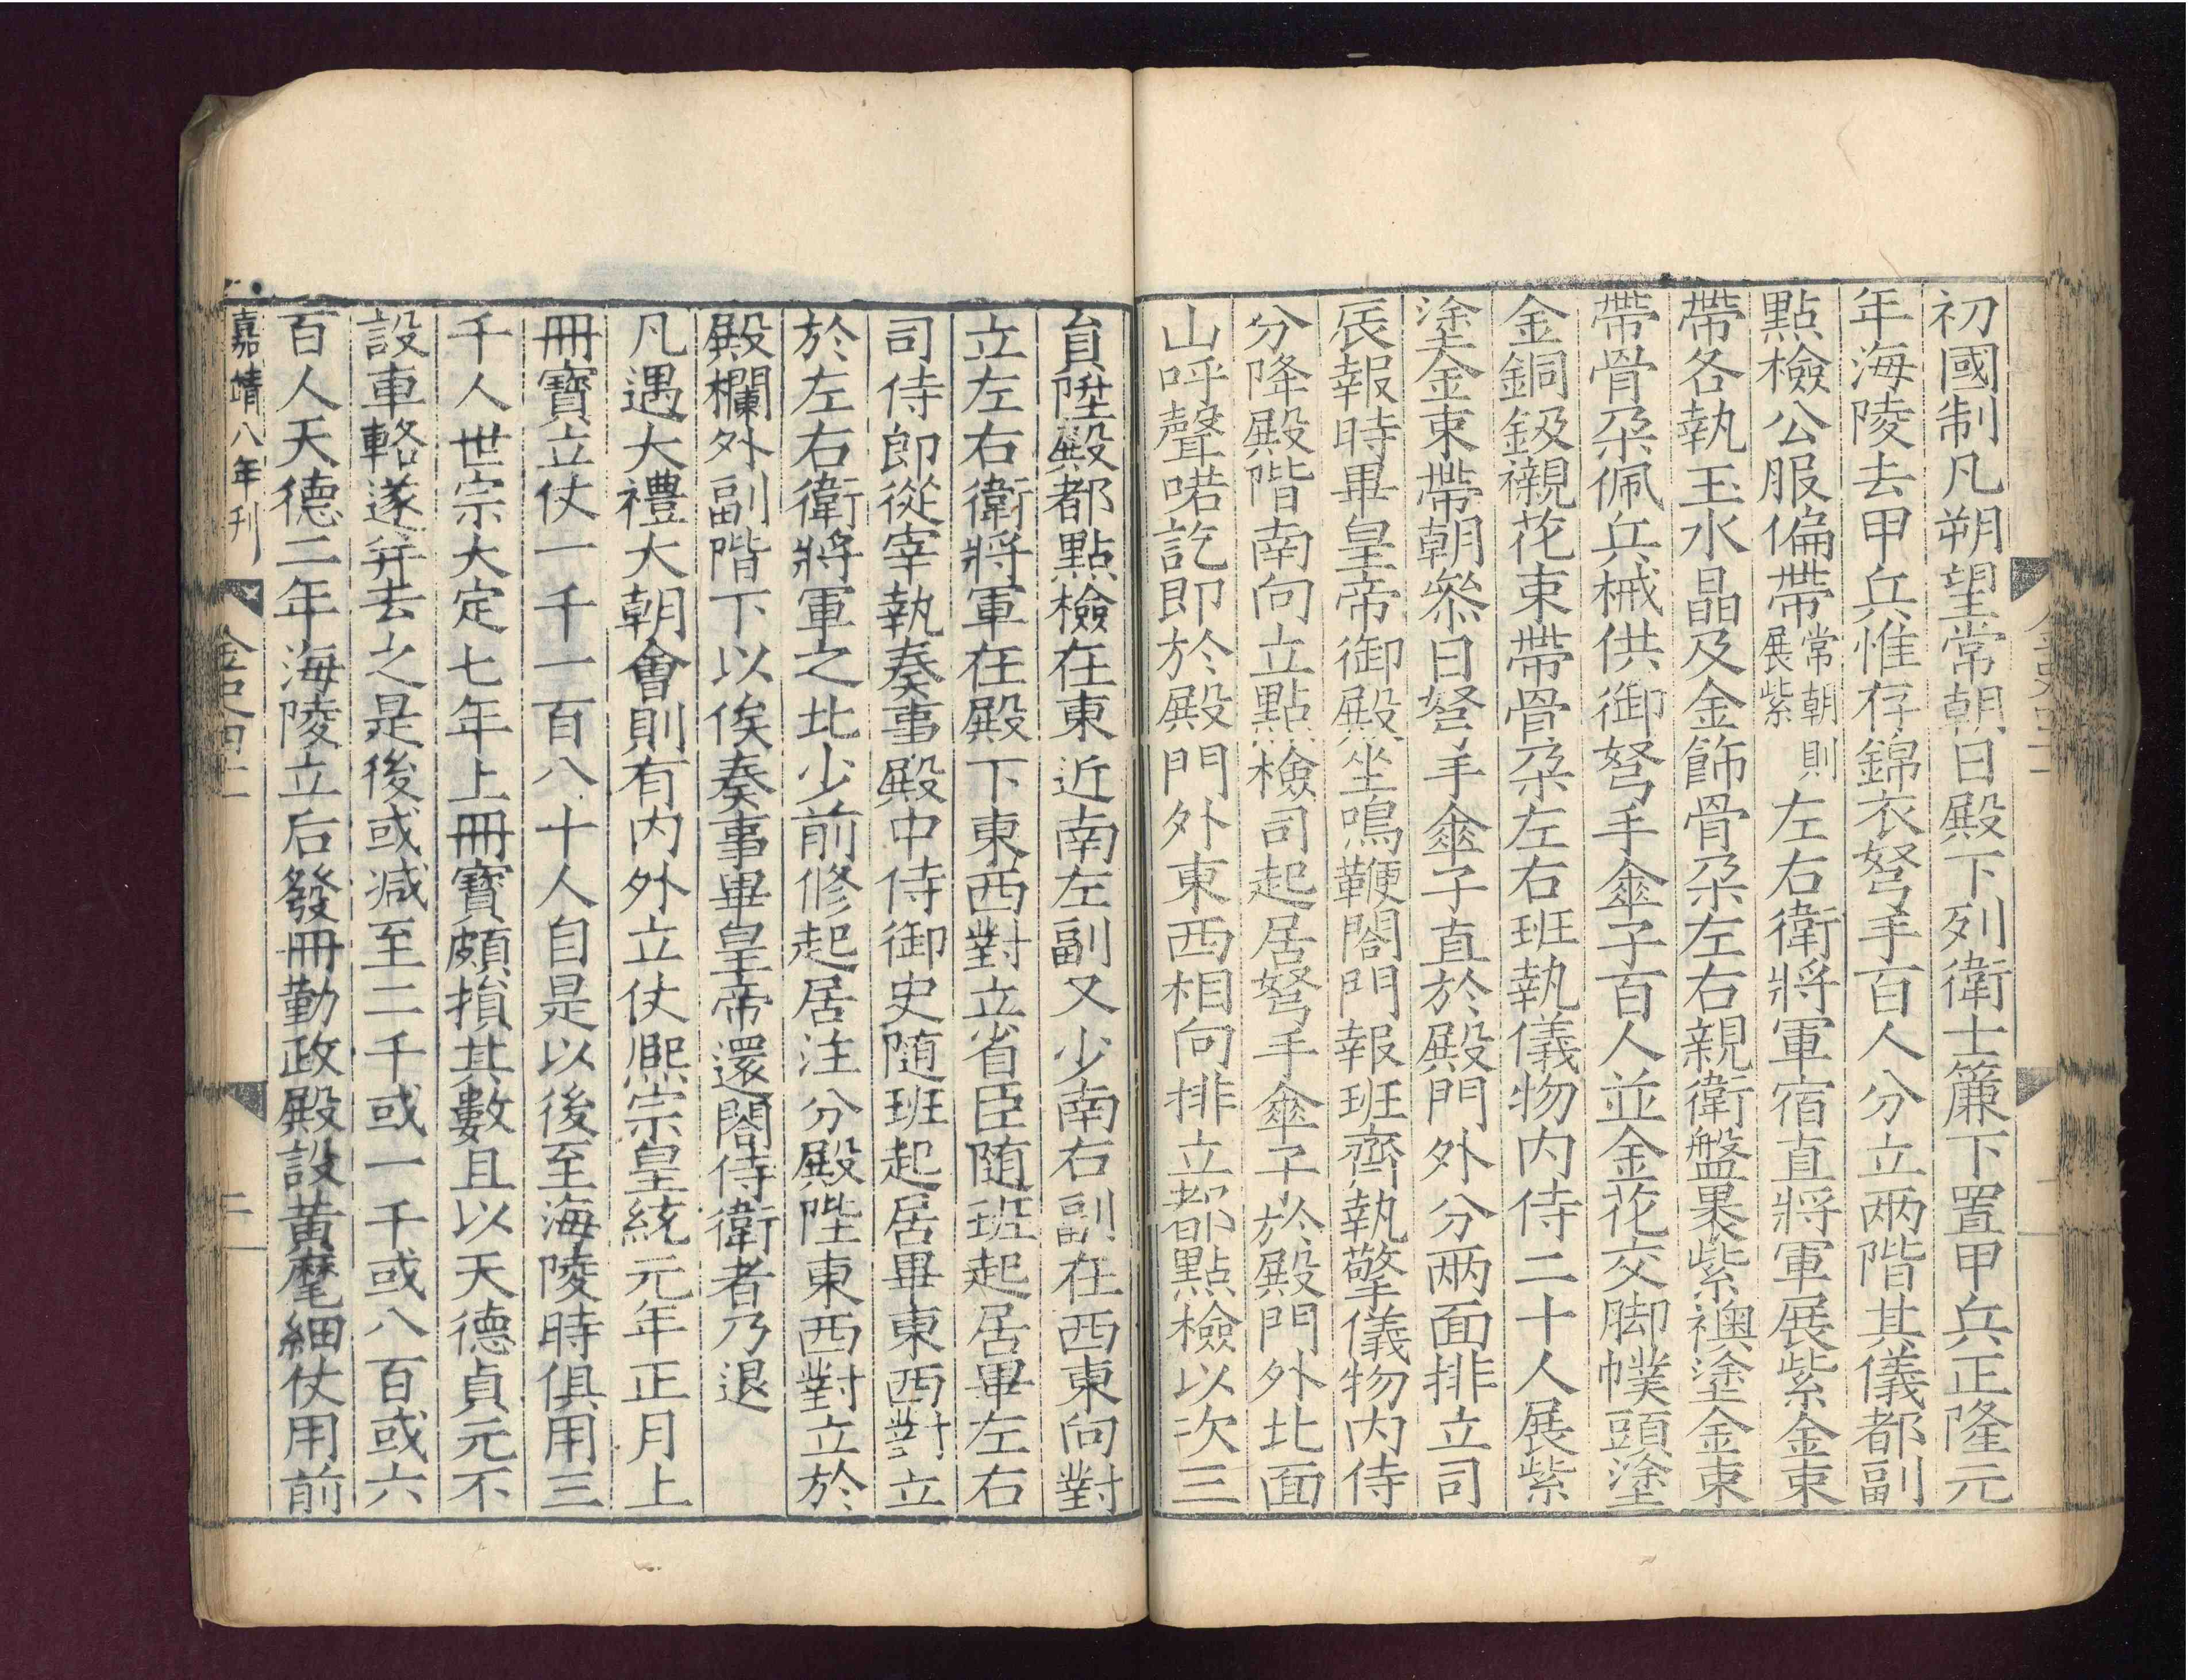 初國制凡朔望常朝日殿下列衛士簾下置甲兵正隆元
年海陵去甲兵惟存錦衣弩手百人分立兩階其儀都副
點檢公服偏帶常朝則展紫左右衛將軍宿直將軍展紫金束
帶各執玉水晶及金飾骨朶左右親衛盤裹紫襖塗金束
帶骨朶佩兵械供御弩手傘子百人並金花交脚幞頭塗
金銅鈒襯花束帶骨朶左右班執儀物内侍二十人展紫
塗金束帶朝叅日弩手傘子直於殿門外分兩面排立司
辰報時畢皇帝御殿坐鳴鞭閤門報班齊執擎儀物内侍
分降殿階南向立點檢司起居弩手傘子於殿門外北面
山呼聲喏訖即於殿門外東西相向排立都點檢以次三
貟陞殿都點檢在東近南左副又少南右副在西東向對
立左右衛將軍在殿下東西對立省臣随班起居畢左右
司侍郎從宰執奏事殿中侍御史随班起居畢東西對立
於左右衛將軍之北少前修起居注分殿陛東西對立於
殿欄外副階下以俟奏事畢皇帝還閤侍衛者乃退
凡遇大禮大朝會則有内外立仗熈宗皇統元年正月上
冊寶立仗一千一百八十人自是以後至海陵時俱用三
千人世宗大定七年上冊寶頗損其數且以天德貞元不
設車輅遂并去之是後或减至二千或一千或八百或六
百人天德二年海陵立后發冊勤政殿設黄麾細仗用前
嘉靖八年刊
金史四十二
二